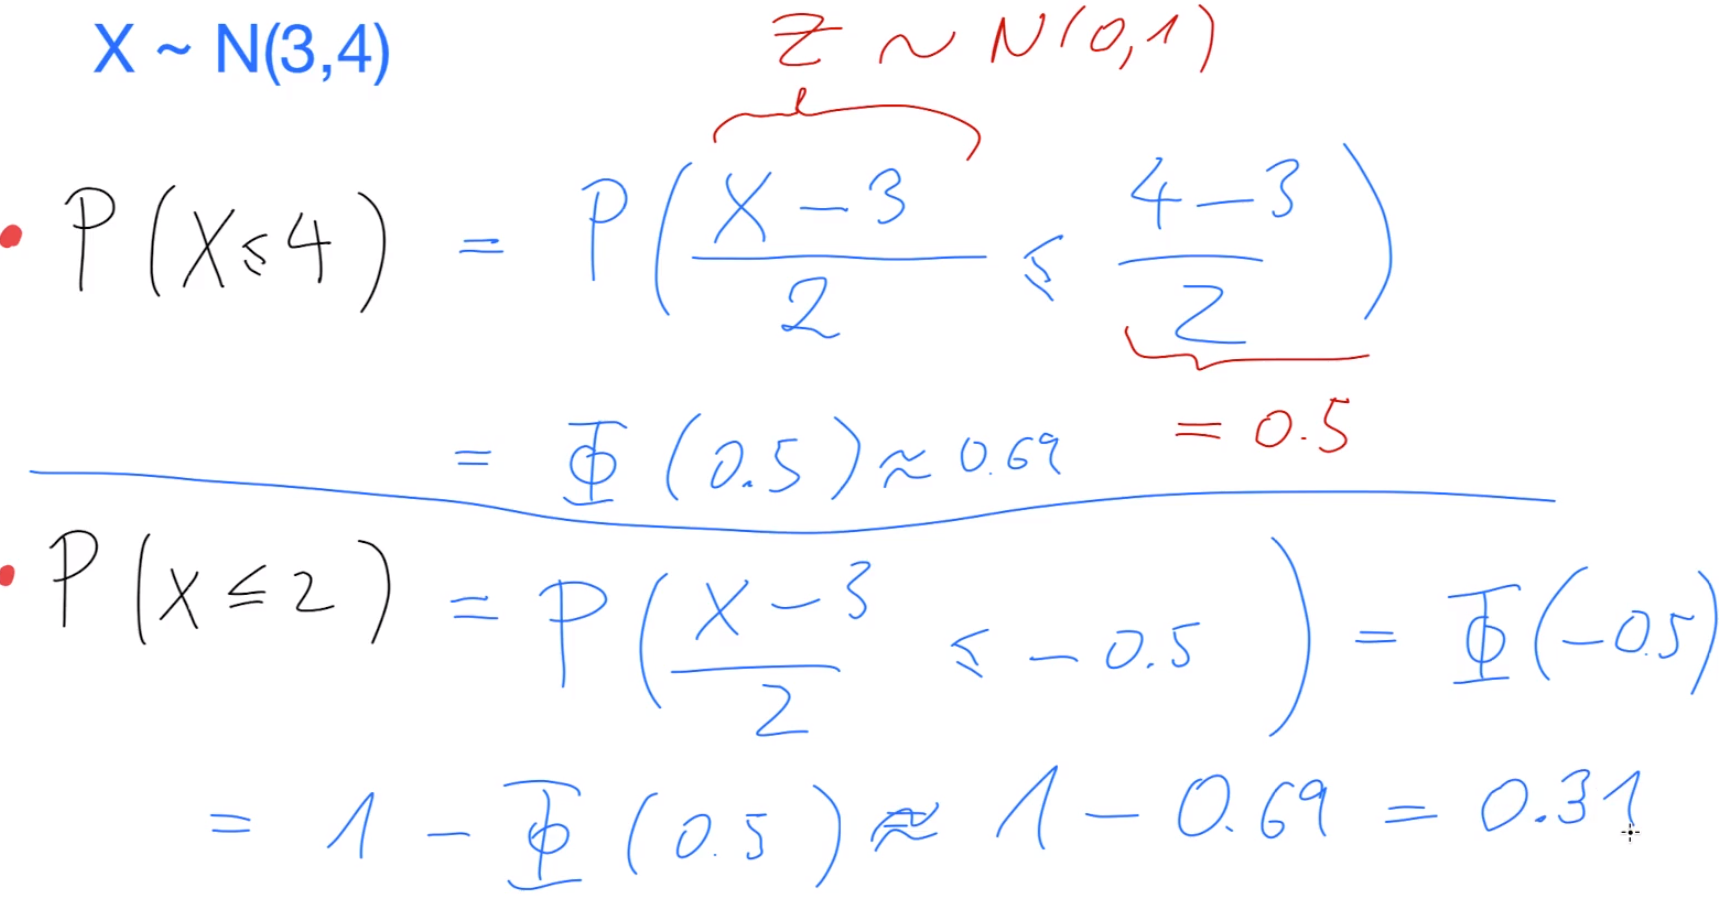 X ~ N(3,4)
Z ~ N(0,1)
P(X≤4) = P((X-3)/2 ≤ (4-3)/2)
= 0.5
= Φ(0.5) ≈ 0.69
P(X≤2) = P((X-3)/2 ≤ -0.5) = Φ(-0.5)
= 1 - Φ(0.5) ≈ 1 - 0.69 = 0.31